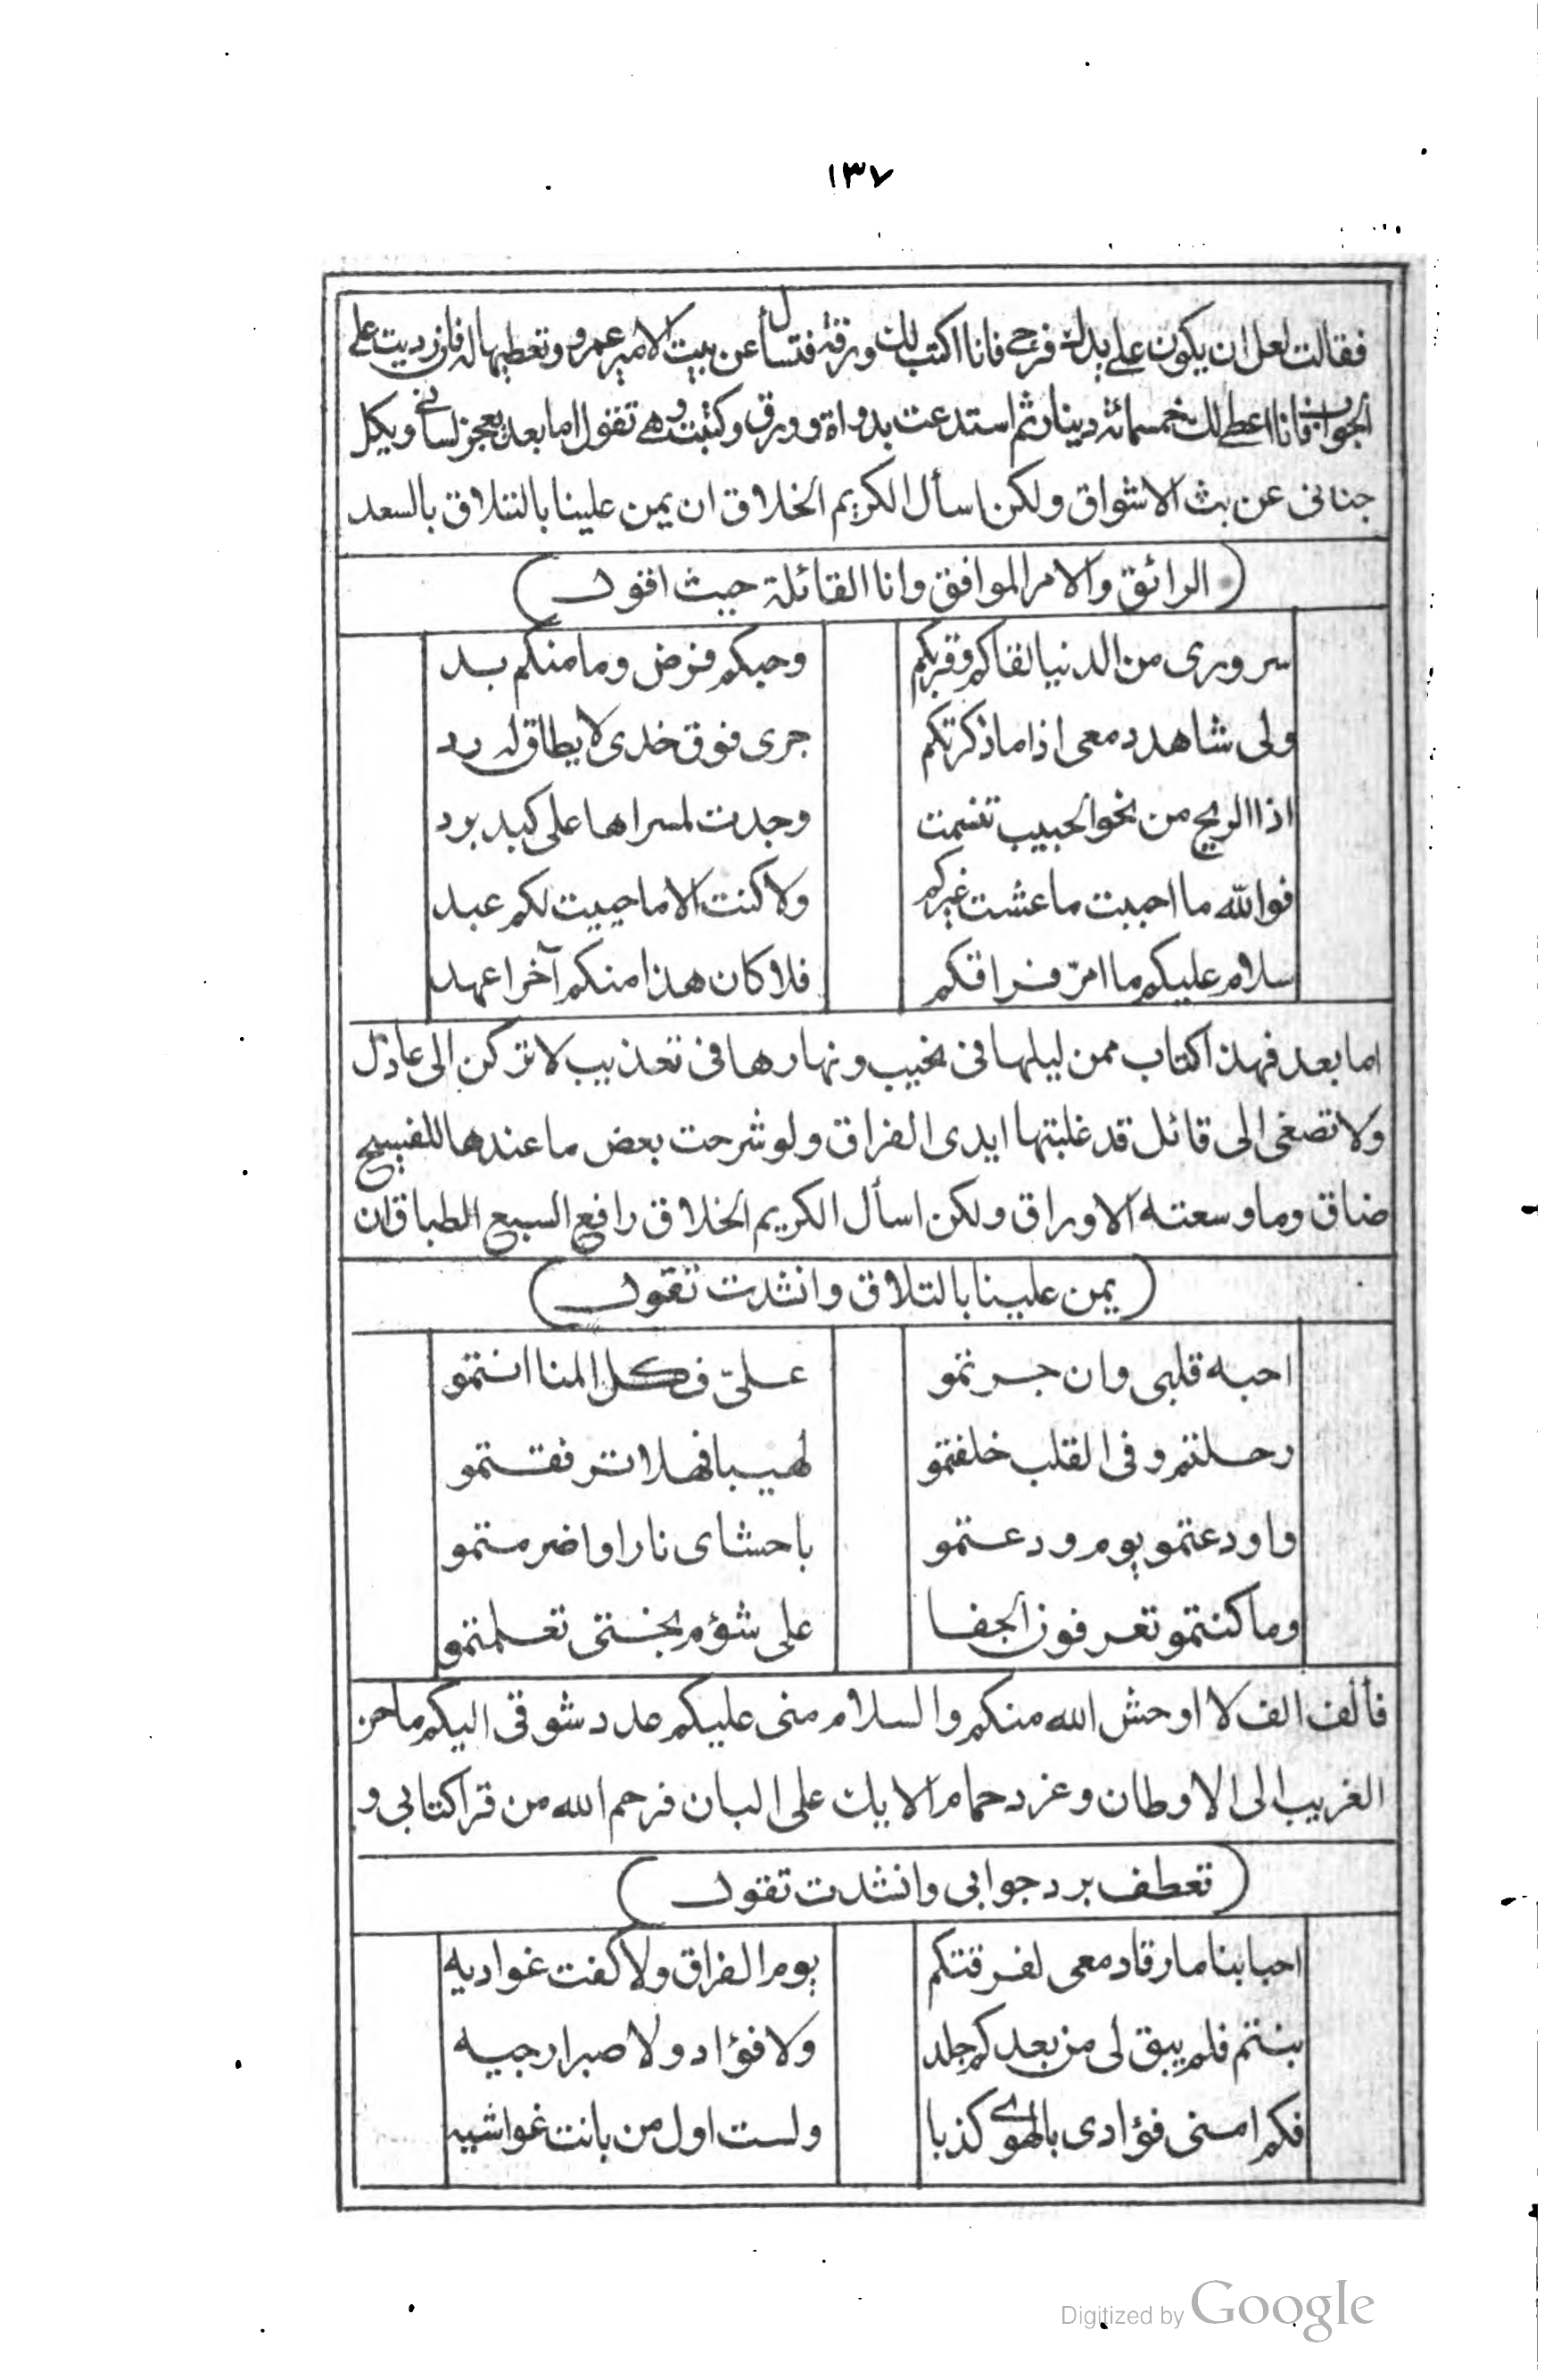 ١٣٧
فقالت لعل ان يكون على يدك فرجى فانا اكتب لك ورقة فتسأل عن بيت الامير عمرو وتعطيهاله فان رديت على
الجواب فانا اعطى لك خمسمائة دينار ثم استدعت بدواة وورق وكتبت وهى تقول اما بعد يعجز لسانى ويكل
جنانى عن بث الاشواق ولكن اسأل الكريم الخلاق ان يمن علينا بالتلاق بالسعد
(الرائق والامر الموافق وانا القائلة حيث اقول)
سرورى من الدنيا لقاكم وقربكم وحبكم فرض وما منكم بد
ولى شاهد دمعى اذا ما ذكرتكم جرى فوق خدى لا يطاق له رد
اذا الريح من نحو الحبيب تنسمت وجدت لمسراها على كبد برد
فوالله ما احببت ما عشت غيركم ولا كنت الا ما حييت لكم عبد
سلام عليكم ما امرّ فراقكم فلا كان هذا منكم آخرا عهد
اما بعد فهذا كتاب ممن ليلها فى نحيب ونهارها فى تعذيب لا تركن الى عاذل
ولا تصغى الى قائل قد غلبتها ايدى الفراق ولو شرحت بعض ما عندها للفسيح
ضاق وما وسعته الاوراق ولكن اسأل الكريم الخلاق رافع السبع الطباق ان
(يمن علينا بالتلاق وانشدت تقول)
احبه قلبى وان جرتمو علىّ فكل المنا انتمو
رحلتم وفى القلب خلفتمو لهيبا فهلا ترفقتمو
واودعتمو يوم ودعتمو باحشاى نارا واضرمتمو
وما كنتمو تعرفون الجفا على شؤم بختى تعلمتمو
فألف الف لا اوحش الله منكم والسلام منى عليكم عدد شوقى اليكم ما حن
الغريب الى الاوطان وغرد حمام الايك على البان فرحم الله من قرا كتابى و
(تعطف برد جوابى وانشدت تقول)
احبابنا مارقا دمعى لفرقتكم يوم الفراق ولا كفت غواديه
بنتم فلم يبق لى من بعدكم جلد ولا فؤاد ولا صبر ارجيه
فكم امنى فؤادى بالهوى كذبا ولست اول من بانت غواشيه
Digitized by Google